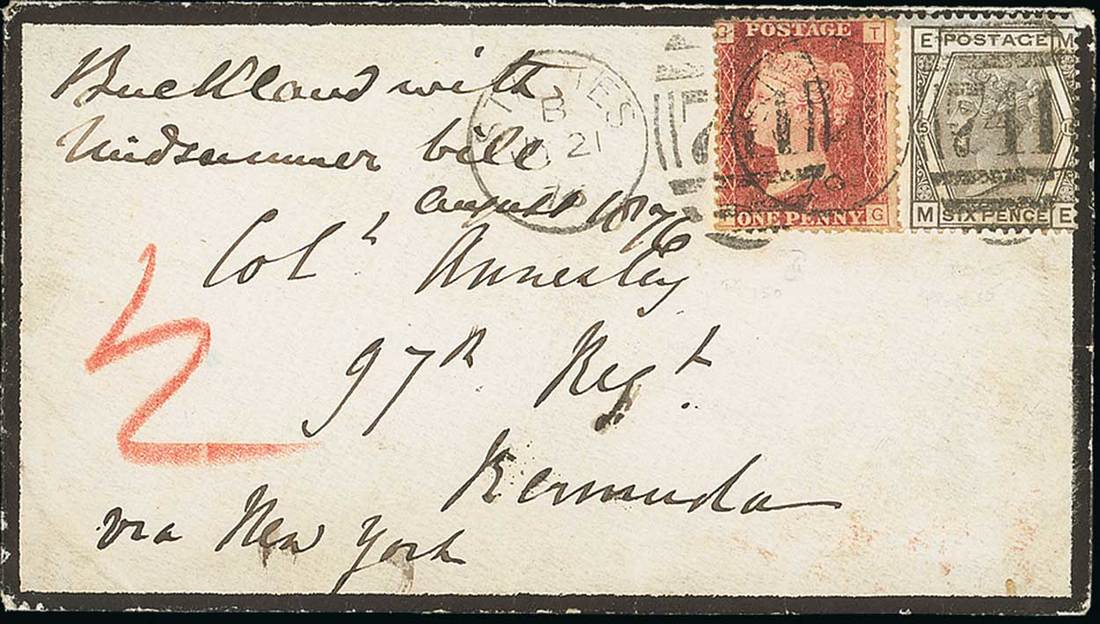 Buckland with
Midsummer bill
august 1876
B
21
76
G POSTAGE T
ONE PENNY G
E POSTAGE M
M SIX PENCE E
741
Colˡ Annesley
97th Regt
Bermuda
via New York